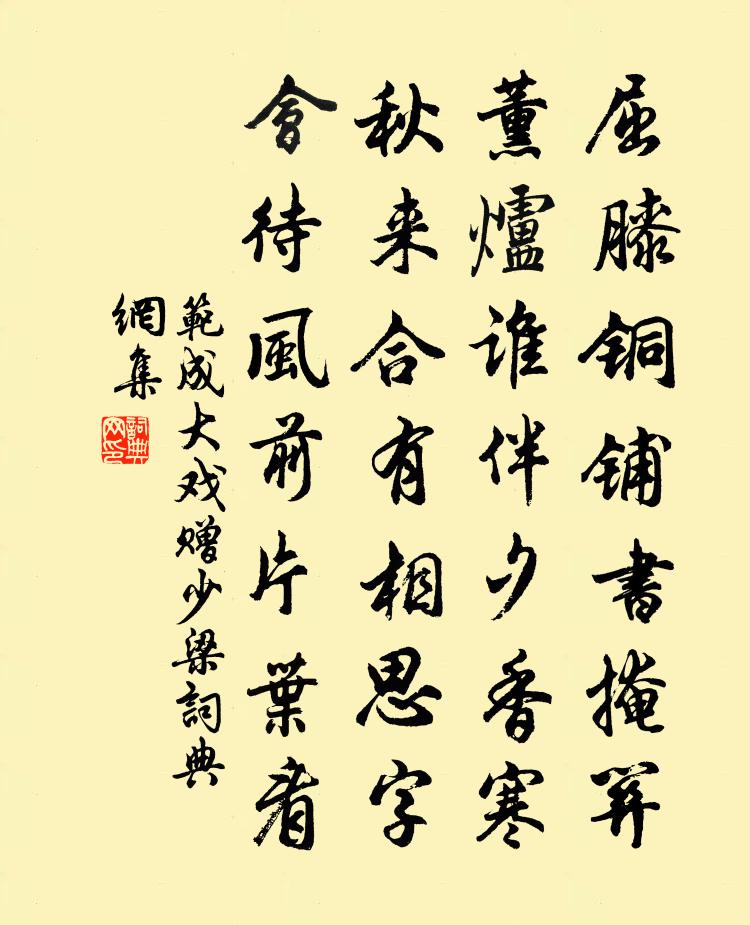 屈膝铜铺書掩關
薰爐谁伴夕香寒
秋来合有相思字
會待風前片葉看
範成大戏赠少梁詞典
網集
詞典
网印